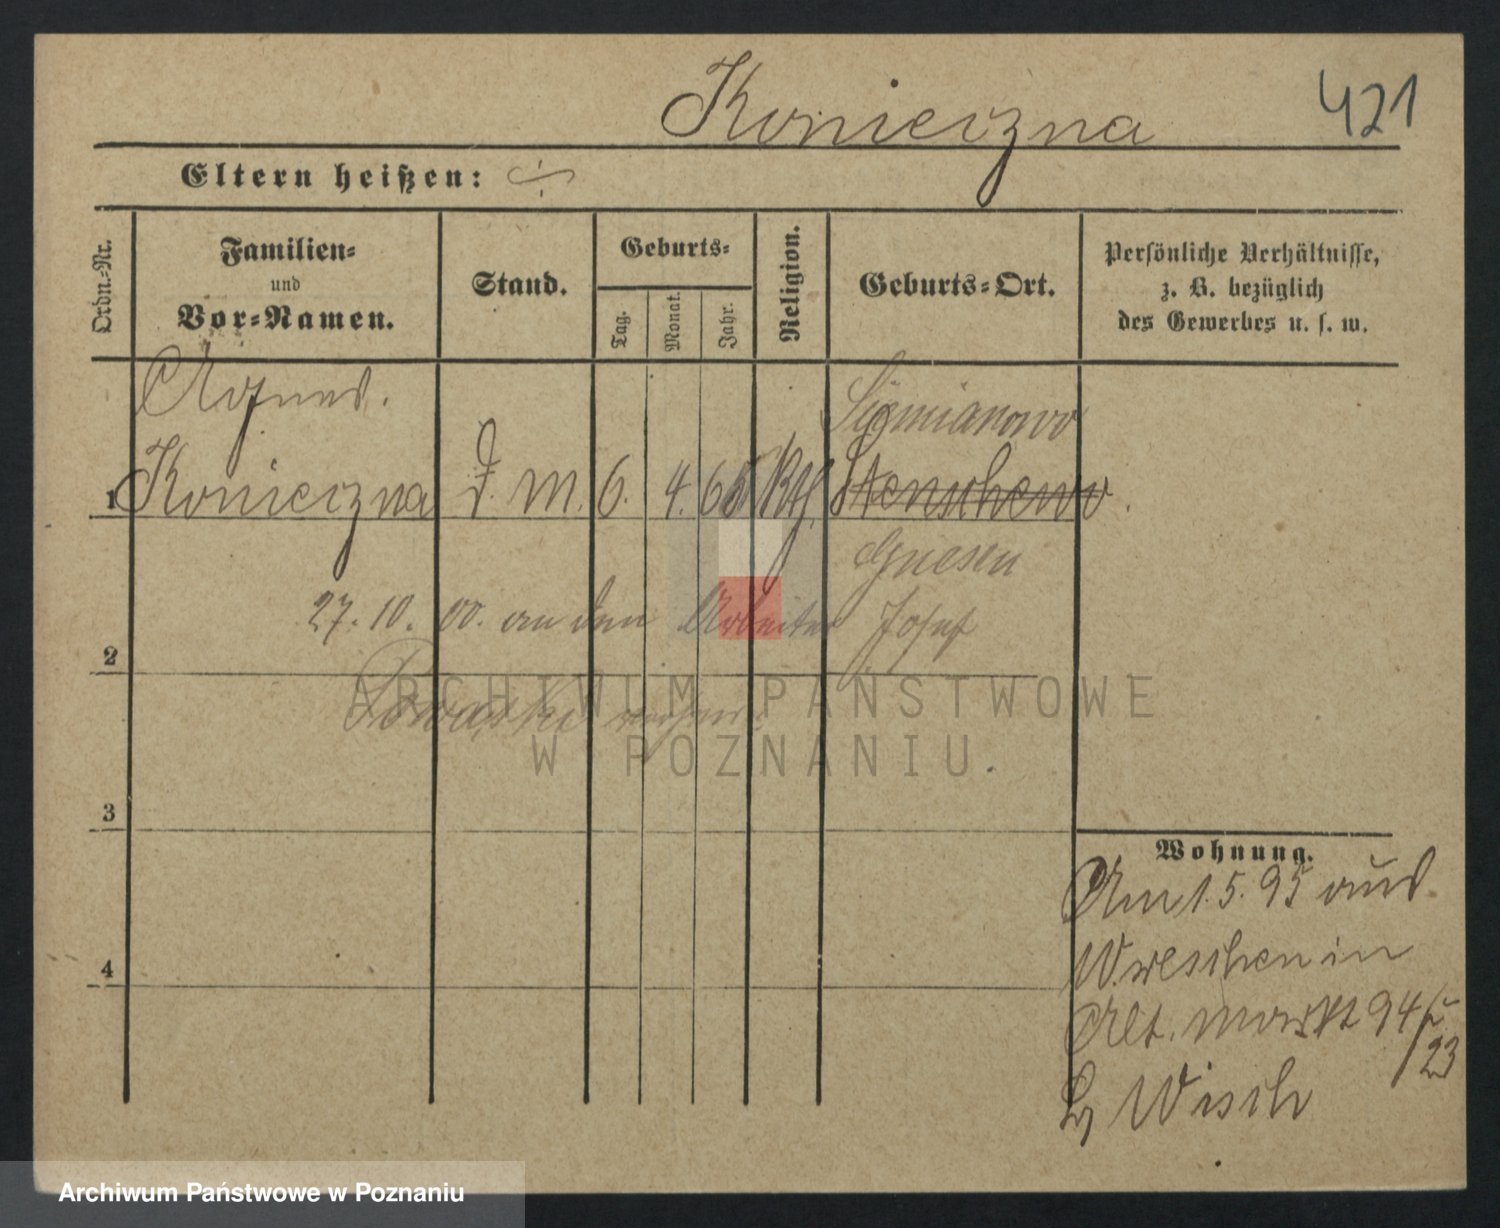 Konieczna
421
Eltern heißen:
Ordn.=Nr.
Familien=
und
Vor=Namen.
Stand.
Geburts=
Tag.
Monat.
Jahr.
Religion.
Geburts=Ort.
Persönliche Verhältnisse,
z. B. bezüglich
des Gewerbes u. s. w.
Agnes.
1 Konieczna d. M. 6. 4. 65 Kth.
Siemianowo
Stenschewo.
Gnesen
27. 10. 00. an den Arbeiter Josef
2
ARCHIWUM PAŃSTWOWE
W POZNANIU
3
4
Wohnung.
Am 1. 5. 95 aus
Wreschen in
Alt. Markt 94
23
b/ Wisch
Archiwum Państwowe w Poznaniu